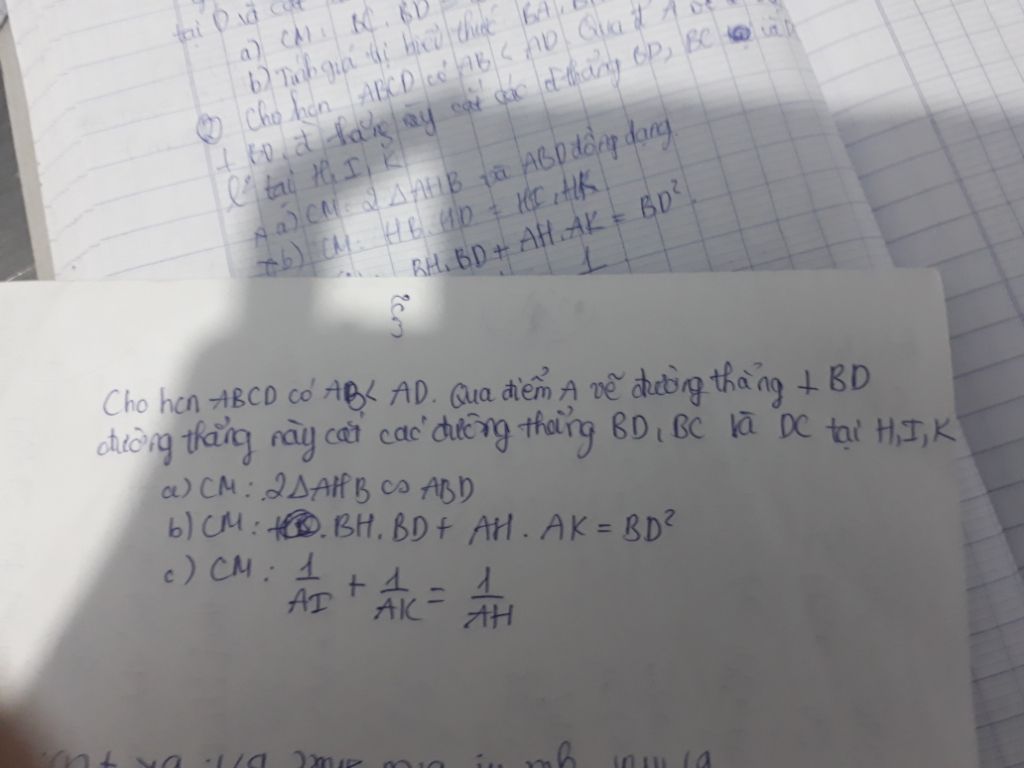 tại D và cắt
a) CM: BC. BD =
b) Tính giá trị biểu thức BA.
② Cho hcn ABCD có AB < AD. Qua đ' A vẽ
⊥ BD. đ thẳng này cắt các đ thẳng BD, BC và
tại H, I, K
a) CM: 2 ΔAHB và ABD đồng dạng.
b) CM: HB. HD = HI. HK
BH. BD + AH. AK = BD²
1
Cho hcn ABCD có AB < AD. Qua điểm A vẽ đường thẳng ⊥ BD
đường thẳng này cắt các đường thẳng BD, BC và DC tại H, I, K
a) CM: 2ΔAHB ∽ ABD
b) CM: BH. BD + AH. AK = BD²
c) CM: 1/AI + 1/AK = 1/AH